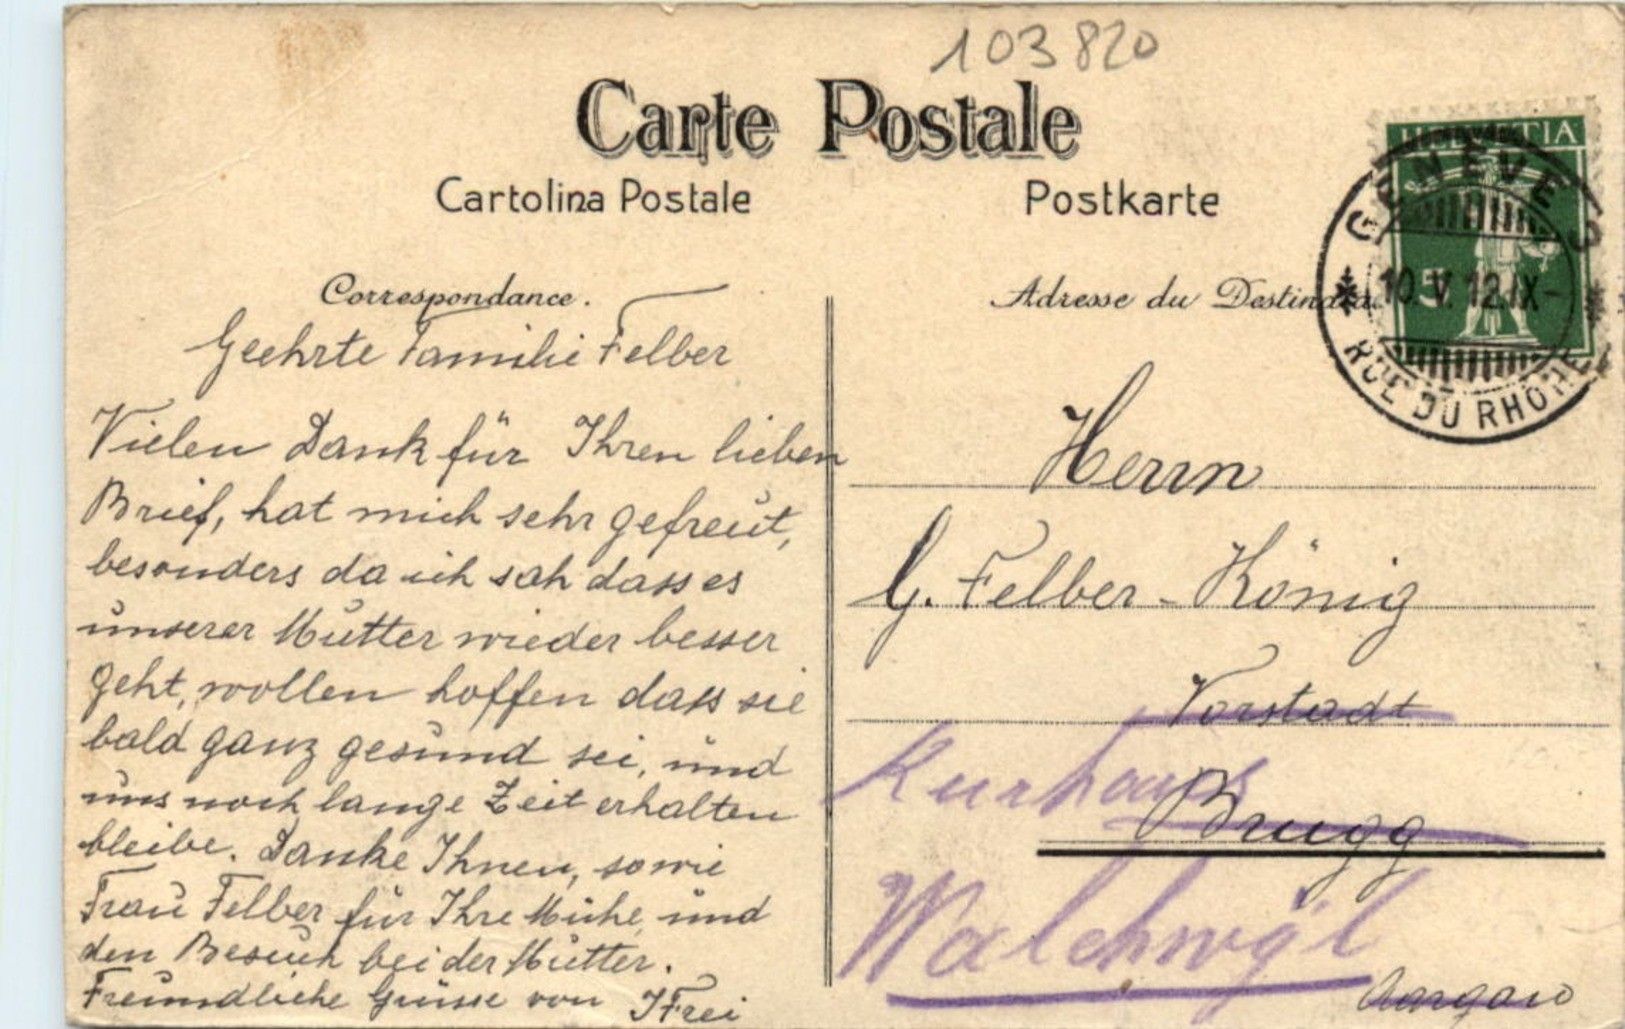 103820
Carte Postale
Cartolina Postale
Postkarte
Correspondance.
Geehrte Familie Felber
Vielen Dank für Ihren lieben
Brief, hat mich sehr gefreut,
besonders da ich sah dass es
unserer Mutter wieder besser
geht, wollen hoffen dass sie
bald ganz gesund sei, und
uns noch lange Zeit erhalten
bleibe. Danke Ihnen, sowie
Frau Felber für Ihre Mühe und
den Besuch bei der Mutter.
Freundliche Grüsse von J Frei
Adresse du
HELVETIA
5
GENÈVE
10.V.12.IX-
RUE DU RHÔNE
Herrn
G. Felber-König
Vorstadt
Kurhaus
Brugg
Walchwyl
Aargau